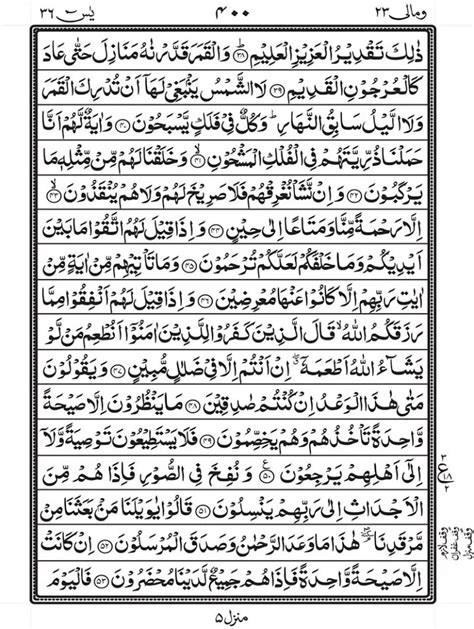 یٰسٓ ٣٦ ٤٠٠ ومالی ٢٣
ذٰلِكَ تَقْدِيْرُ الْعَزِيْزِ الْعَلِيْمِ ۝٣٨ وَالْقَمَرَ قَدَّرْنٰهُ مَنَازِلَ حَتّٰى عَادَ
كَالْعُرْجُوْنِ الْقَدِيْمِ ۝٣٩ لَا الشَّمْسُ يَنْۢبَغِيْ لَهَاۤ اَنْ تُدْرِكَ الْقَمَرَ
وَلَا الَّيْلُ سَابِقُ النَّهَارِ ؕ وَكُلٌّ فِيْ فَلَكٍ يَّسْبَحُوْنَ ۝٤٠ وَاٰيَةٌ لَّهُمْ اَنَّا
حَمَلْنَا ذُرِّيَّتَهُمْ فِي الْفُلْكِ الْمَشْحُوْنِ ۝٤١ وَخَلَقْنَا لَهُمْ مِّنْ مِّثْلِهٖ مَا
يَرْكَبُوْنَ ۝٤٢ وَاِنْ نَّشَاْ نُغْرِقْهُمْ فَلَا صَرِيْخَ لَهُمْ وَلَا هُمْ يُنْقَذُوْنَ ۝٤٣
اِلَّا رَحْمَةً مِّنَّا وَمَتَاعًا اِلٰى حِيْنٍ ۝٤٤ وَاِذَا قِيْلَ لَهُمُ اتَّقُوْا مَا بَيْنَ
اَيْدِيْكُمْ وَمَا خَلْفَكُمْ لَعَلَّكُمْ تُرْحَمُوْنَ ۝٤٥ وَمَا تَاْتِيْهِمْ مِّنْ اٰيَةٍ مِّنْ
اٰيٰتِ رَبِّهِمْ اِلَّا كَانُوْا عَنْهَا مُعْرِضِيْنَ ۝٤٦ وَاِذَا قِيْلَ لَهُمْ اَنْفِقُوْا مِمَّا
رَزَقَكُمُ اللّٰهُ ۙ قَالَ الَّذِيْنَ كَفَرُوْا لِلَّذِيْنَ اٰمَنُوْۤا اَنُطْعِمُ مَنْ لَّوْ
يَشَآءُ اللّٰهُ اَطْعَمَهٗۤ ۖ اِنْ اَنْتُمْ اِلَّا فِيْ ضَلٰلٍ مُّبِيْنٍ ۝٤٧ وَيَقُوْلُوْنَ
مَتٰى هٰذَا الْوَعْدُ اِنْ كُنْتُمْ صٰدِقِيْنَ ۝٤٨ مَا يَنْظُرُوْنَ اِلَّا صَيْحَةً
وَّاحِدَةً تَاْخُذُهُمْ وَهُمْ يَخِصِّمُوْنَ ۝٤٩ فَلَا يَسْتَطِيْعُوْنَ تَوْصِيَةً وَّلَاۤ
اِلٰۤى اَهْلِهِمْ يَرْجِعُوْنَ ۝٥٠ وَنُفِخَ فِي الصُّوْرِ فَاِذَا هُمْ مِّنَ
الْاَجْدَاثِ اِلٰى رَبِّهِمْ يَنْسِلُوْنَ ۝٥١ قَالُوْا يٰوَيْلَنَا مَنْۢ بَعَثَنَا مِنْ
مَّرْقَدِنَا ۘ هٰذَا مَا وَعَدَ الرَّحْمٰنُ وَصَدَقَ الْمُرْسَلُوْنَ ۝٥٢ اِنْ كَانَتْ
اِلَّا صَيْحَةً وَّاحِدَةً فَاِذَا هُمْ جَمِيْعٌ لَّدَيْنَا مُحْضَرُوْنَ ۝٥٣ فَالْيَوْمَ
٣
ع ١٨
٢
وقف لازم
وقف غفران
وقف منزل
منزل ٥